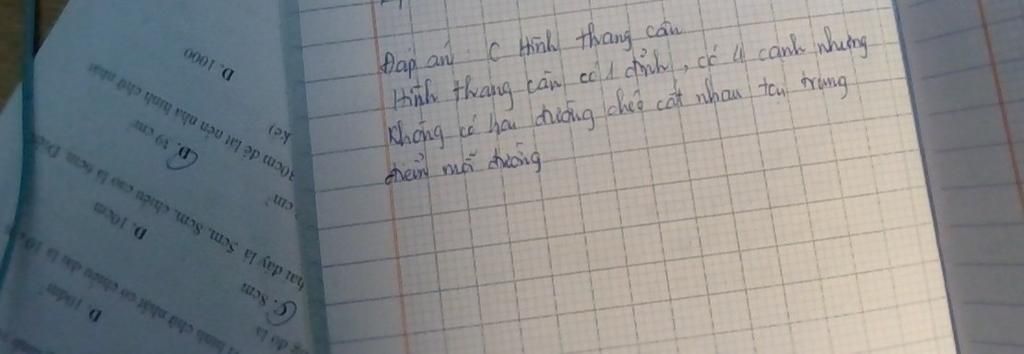 Đáp án : C Hình thang cân
Hình thang cân có 4 đỉnh, có 4 cạnh nhưng
không có hai đường chéo cắt nhau tại trung
điểm mỗi đường
D. 1000
30cm để lát nền nhà hình chữ nhật
D. 39 cm²
cm²
hai đáy là 5cm, 8cm, chiều cao là 6cm.
D. 10cm
C. 8cm
hình chữ nhật có chiều dài là 10